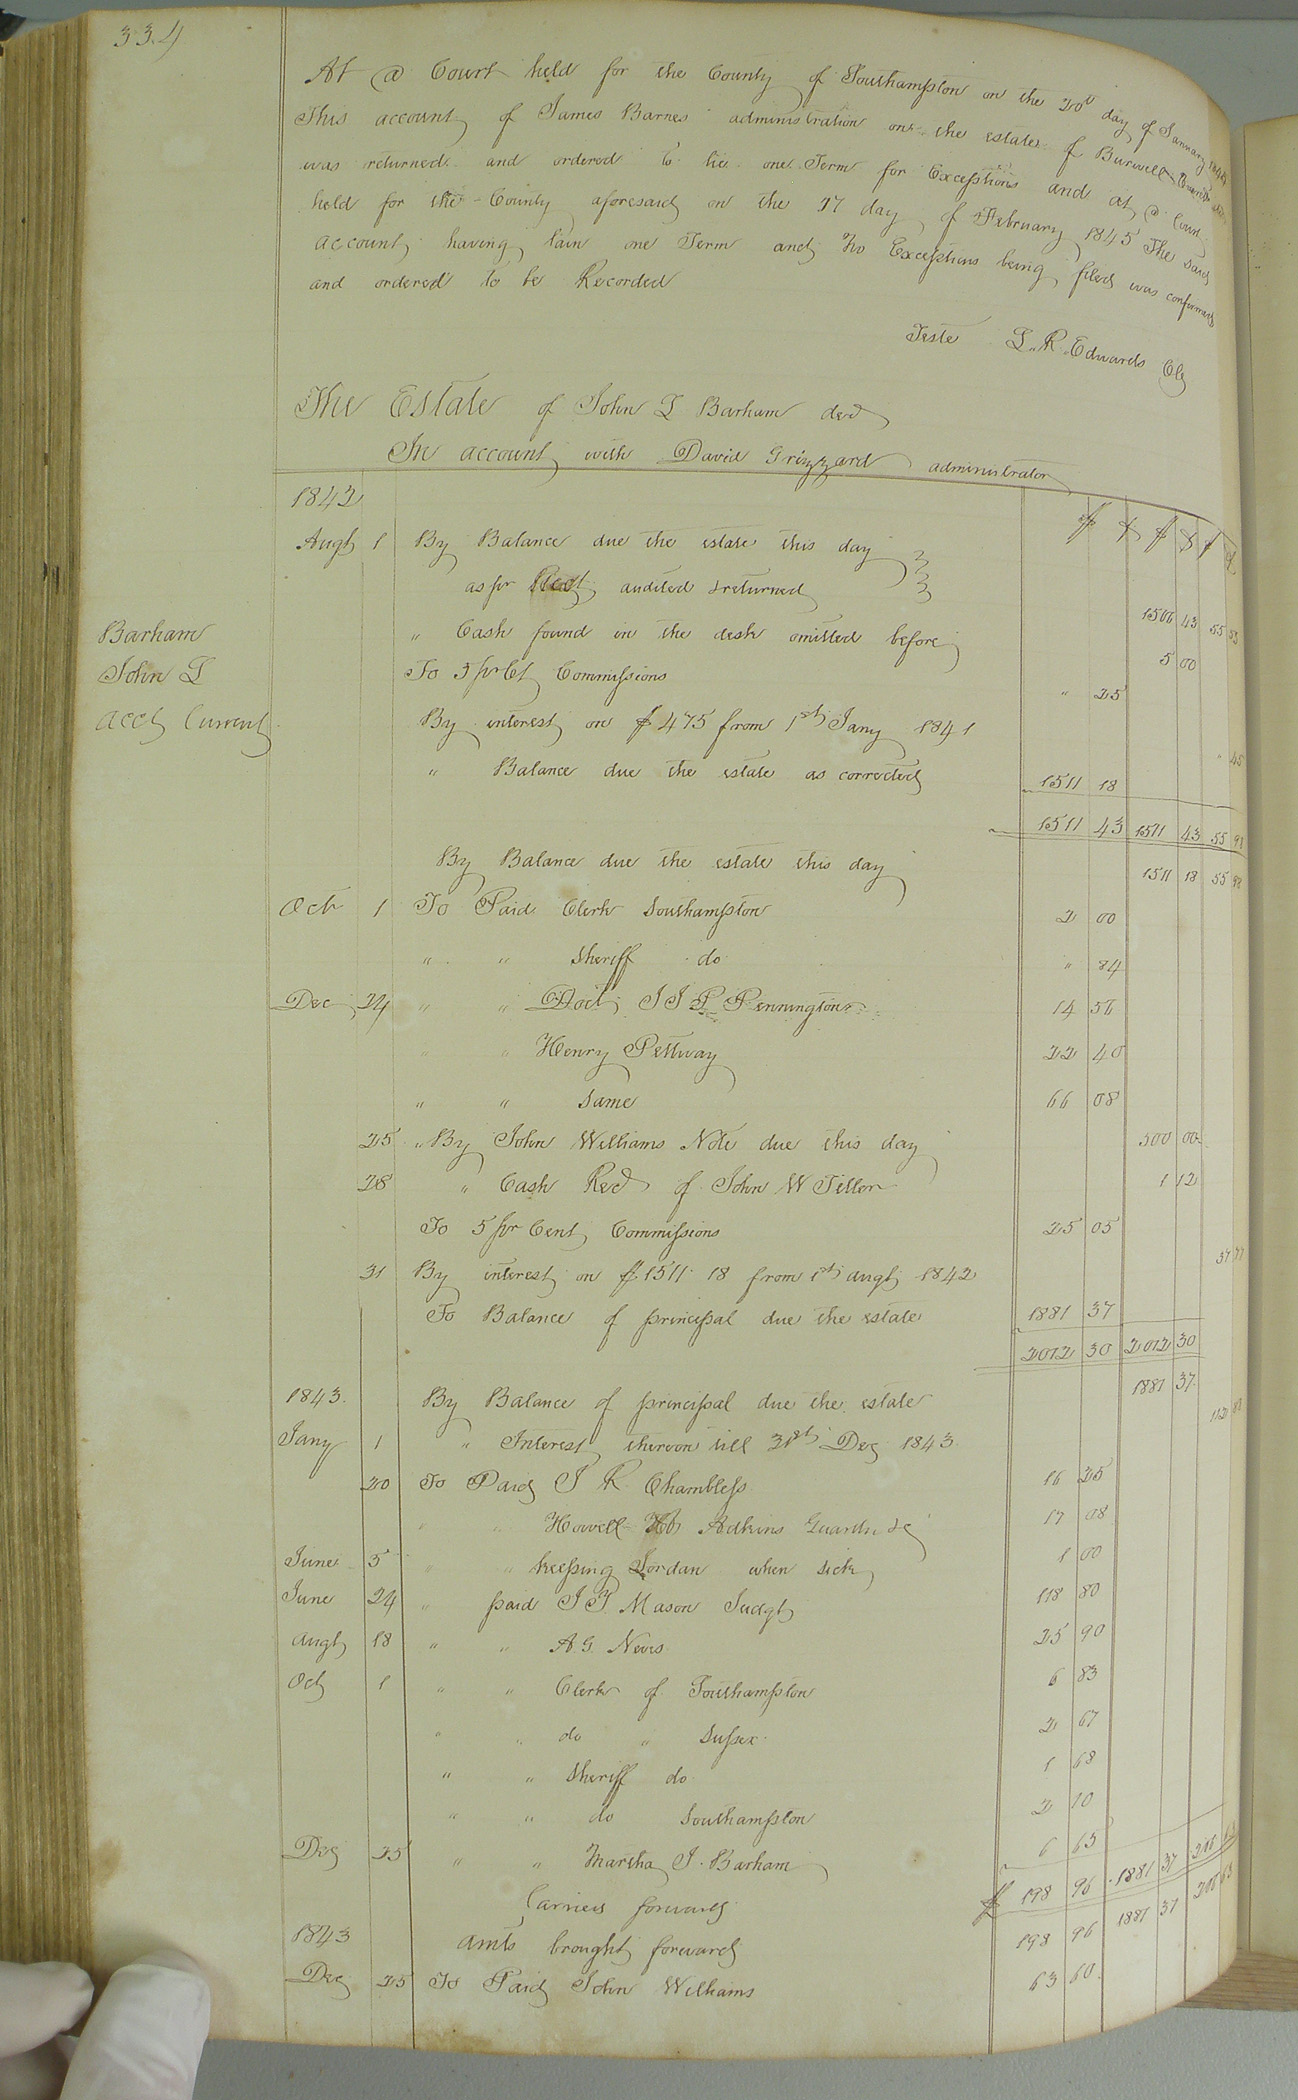 334
At a Court held for the County of Southampton on the 20th day of January
This account of James Barnes administration on the estate of Burwell
was returned and ordered to lie one Term for Exceptions and at a Court
held for the County aforesaid on the 17 day of February 1845 The said
account having lain one Term and No Exceptions being filed was confirmed
and ordered to be Recorded
Teste L. R. Edwards Clk
The Estate of John L Barham decd
In account with David Grizzard administrator
1842
Augt 1 By Balance due the estate this day
as pr Acct audited & returned 1506 43 55 53
Barham
John L
Acct Current
" Cash found in the desk omitted before 5 00
To 5 pr Ct Commissions " 25
By interest on $475 from 1st Jany 1841 " 45
" Balance due the estate as corrected 1511 18
1511 43 1511 43 55 98
By Balance due the estate this day 1511 18 55 98
Oct 1 To Paid Clerk Southampton 2 00
" " Sheriff do " 84
Dec 24 " " Doct J J P Pennington 14 56
" " Henry Pettway 22 40
" " Same 66 08
25 " By John Williams Note due this day 500 00
28 " Cash Recd of John W Tiller 1 12
To 5 pr Cent Commissions 25 05
31 By interest on $1511 18 from 1st Augt 1842 37 77
To Balance of principal due the estate 1881 37
2012 30 2012 30
1843. By Balance of principal due the estate 1881 37
Jany 1 " Interest thereon till 31st Dec 1843 112 88
20 To Paid J R Chambless 16 25
" " Howell Adkins Guardn &c 17 08
June 5 " " keeping Jordan when sick 1 00
June 24 " paid J T Mason Judgt 118 80
Augt 18 " " A. G. Neves 25 90
Oct 1 " " Clerk of Southampton 6 83
" " do " Sussex 2 67
" " Sheriff do 1 68
" " do Southampton 2 10
Dec 25 " " Martha J. Barham 6 65
Carried forward $ 198 96 1881 37 206 63
1843 Amts brought forward 198 96 1881 37 206 63
Dec 25 To Paid John Williams 63 60